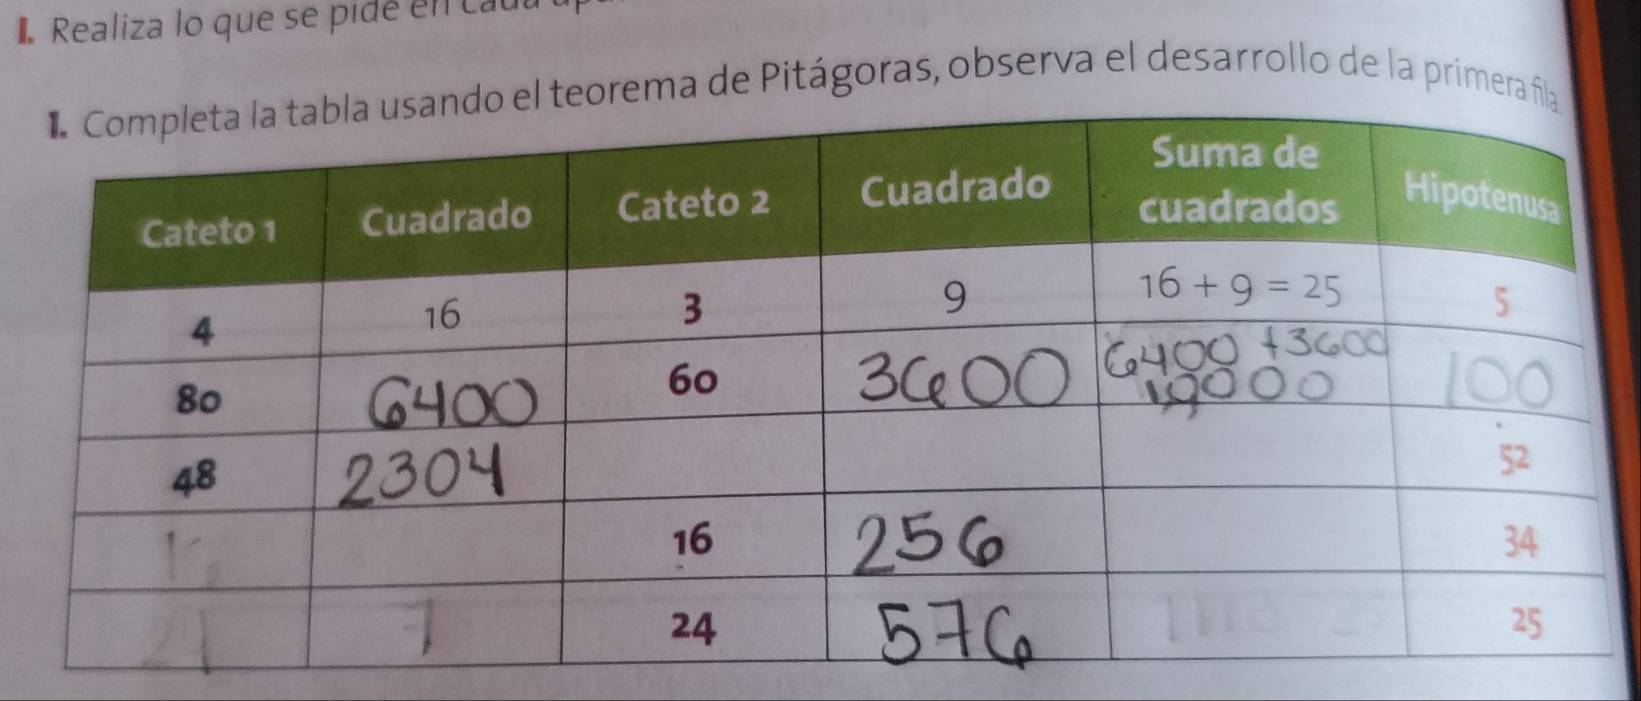 I. Realiza lo que se pide en
1. Completa la tabla usando el teorema de Pitágoras, observa el desarrollo de la primera fila.
Cateto 1 Cuadrado Cateto 2 Cuadrado Suma de cuadrados Hipotenusa
4 16 3 9 16 + 9 = 25 5
80 6400 60 3600 6400 + 3600 10000 100
48 2304 52
16 256 34
24 576 25